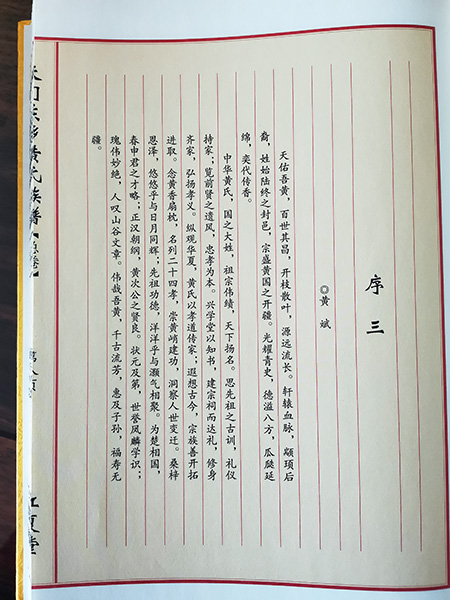 序三
◎黄斌
天佑吾黄，百世其昌，开枝散叶，源远流长。轩辕血脉，颛顼后
裔，姓始陆终之封邑，宗盛黄国之开疆。光耀青史，德溢八方，瓜瓞延
绵，奕代传香。
中华黄氏，国之大姓，祖宗伟绩，天下扬名。思先祖之古训，礼仪
持家；览前贤之遗风，忠孝为本。兴学堂以知书，建宗祠而达礼，修身
齐家，弘扬孝义。纵观华夏，黄氏以孝道传家；遐想古今，宗族善开拓
进取。念黄香扇枕，名列二十四孝，崇黄峭建功，洞察人世变迁。桑梓
恩泽，悠悠乎与日月同辉；先祖功德，洋洋乎与灏气相聚。为楚相国，
春申君之才略；正汉朝纲，黄次公之贤良。状元及第，世誉凤麟学识；
瑰伟妙绝，人叹山谷文章。伟哉吾黄，千古流芳，惠及子孙，福寿无
疆。
黄氏族谱
江夏堂